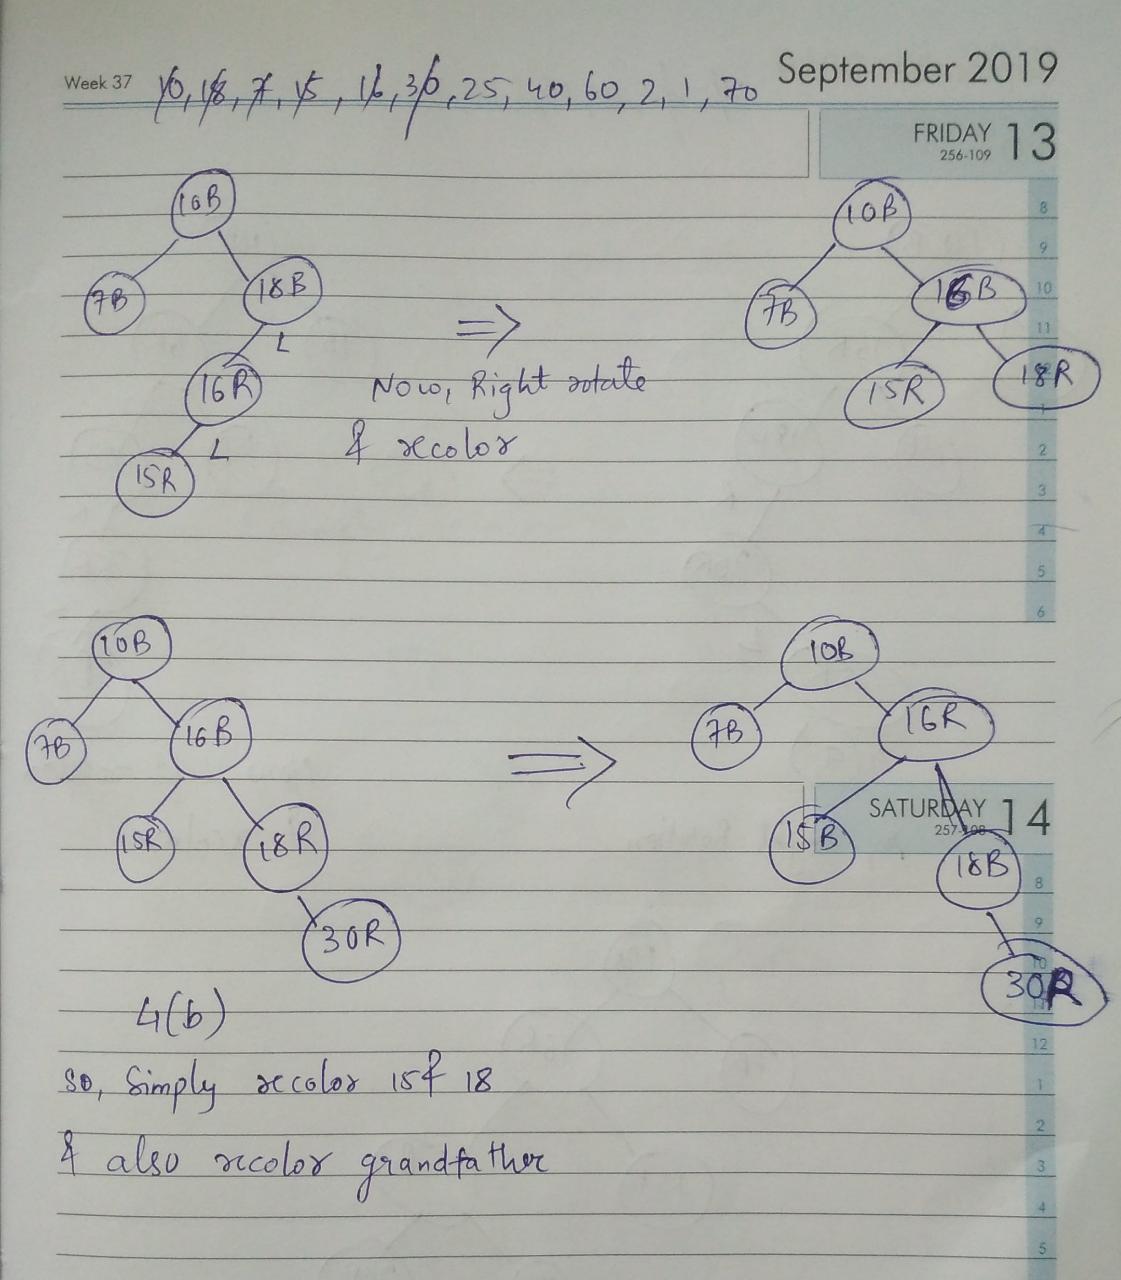 Week 37
10, 18, 7, 15, 16, 30, 25, 40, 60, 2, 1, 70
September 2019
FRIDAY 13
256-109
10B
7B
18B
L
16R
L
15R
⇒
Now, Right rotate
& recolor
10B
7B
16B
15R
18R
8
9
10
11
1
2
3
4
5
6
10B
7B
16B
15R
18R
30R
⇒
10B
7B
16R
15B
18B
30R
SATURDAY 14
257-108
8
9
10
11
12
1
2
3
4
5
4(b)
so, Simply recolor 15 & 18
& also recolor grandfather